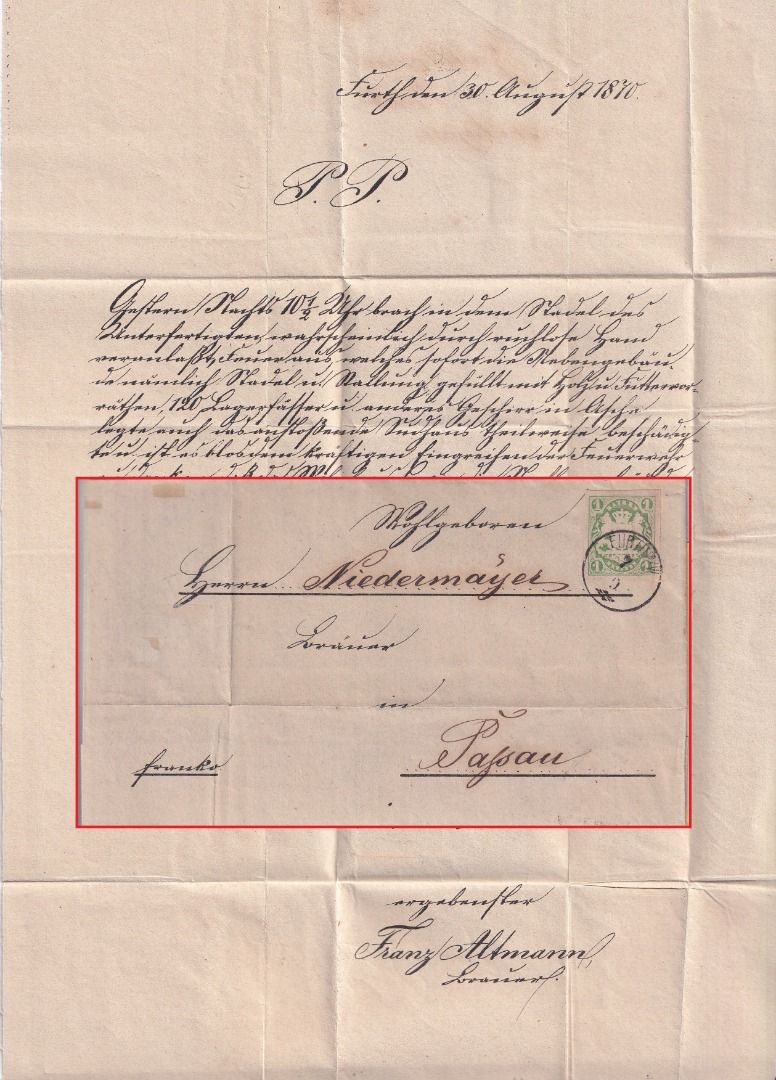 Furth den 30. August 1870.
P. P.
Gestern Nachts 10½ Uhr brach in dem Stadel des
Unterfertigten, wahrscheinlich durch ruchlose Hand
veranlaßt, Feuer aus, welches sofort die Nebengebäu-
de nämlich Stadel u. Stallung gefüllt mit Holz u. Futtervor-
räthen, 120 Lagerfässer u. anderes Geschirr in Asche
legte auch das anstoßende Sudhaus theilweise beschädig-
te u. ist es blos dem kräftigen Eingreifen der Feuerwehr
Wohlgeboren
1 1
BAYERN
1 1
FURTH
Herrn Niedermayer
Bräuer
in
Passau
franko
ergebenster
Franz Altmann,
Brauer.